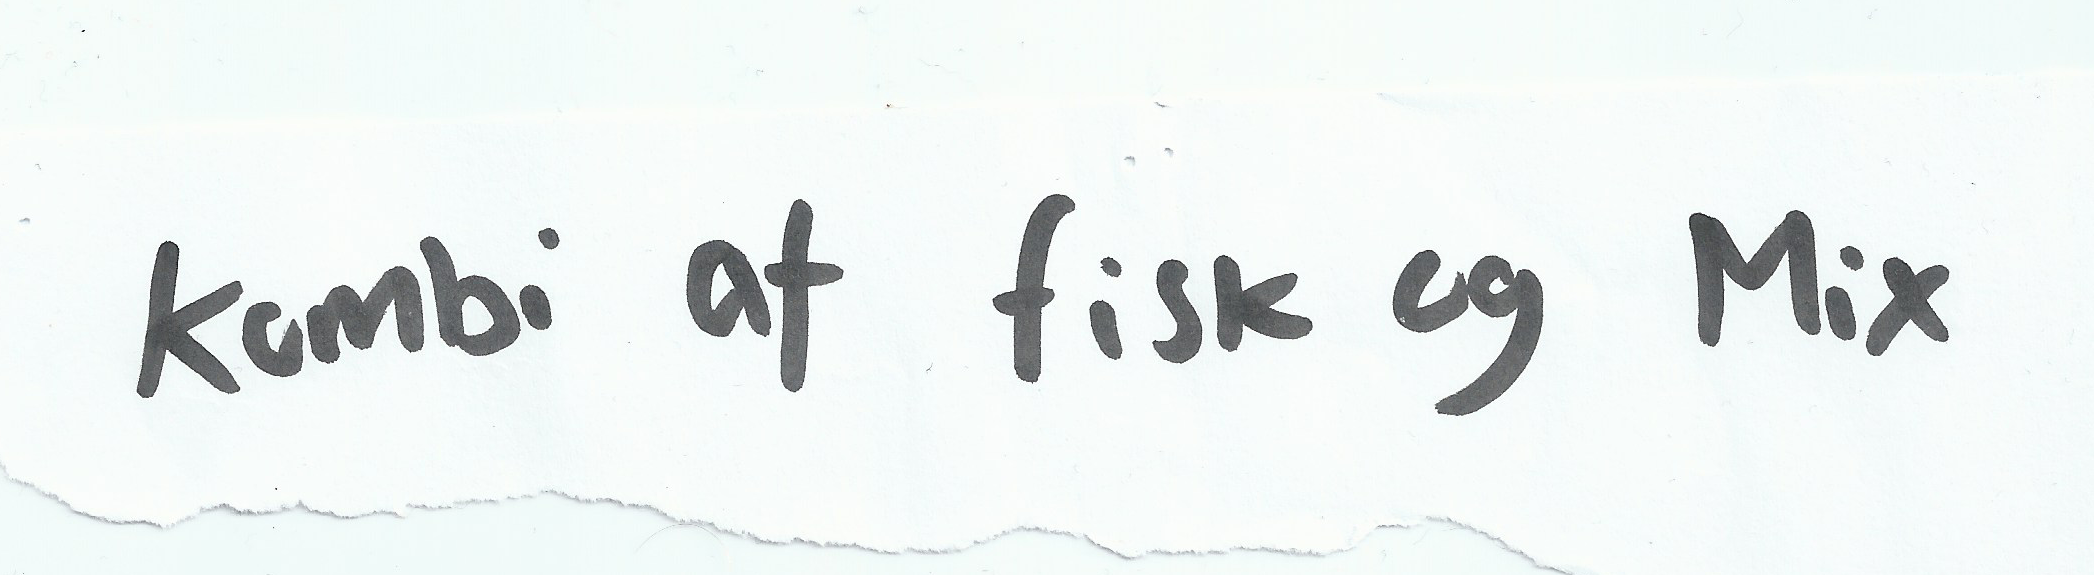 Kombi af fisk og Mix